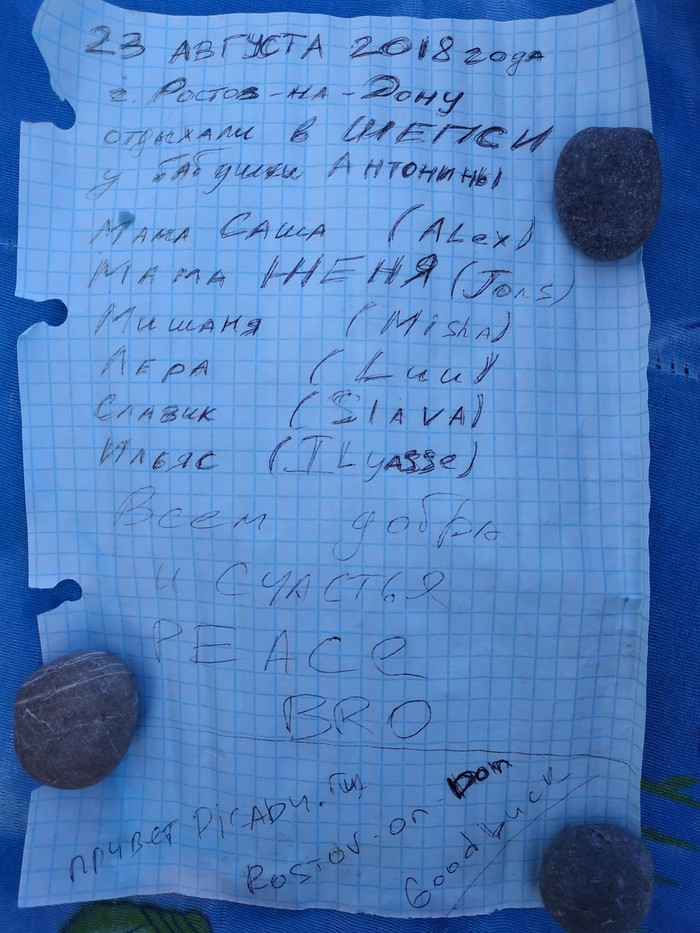 23 АВГУСТА 2018 года
г. Ростов-на-Дону
отдыхали в ШЕПСИ
у бабушки Антонины
Мама Саша (ALex)
Мама ЖЕНЯ (Jons)
Мишаня (Misha)
Лера (Luu)
Славик (SlAVA)
Ильяс (ILyasse)
Всем добра
и счастья
PEACe
BRO
привет Picabu.ru
Rostov-on-Don
Good Luck